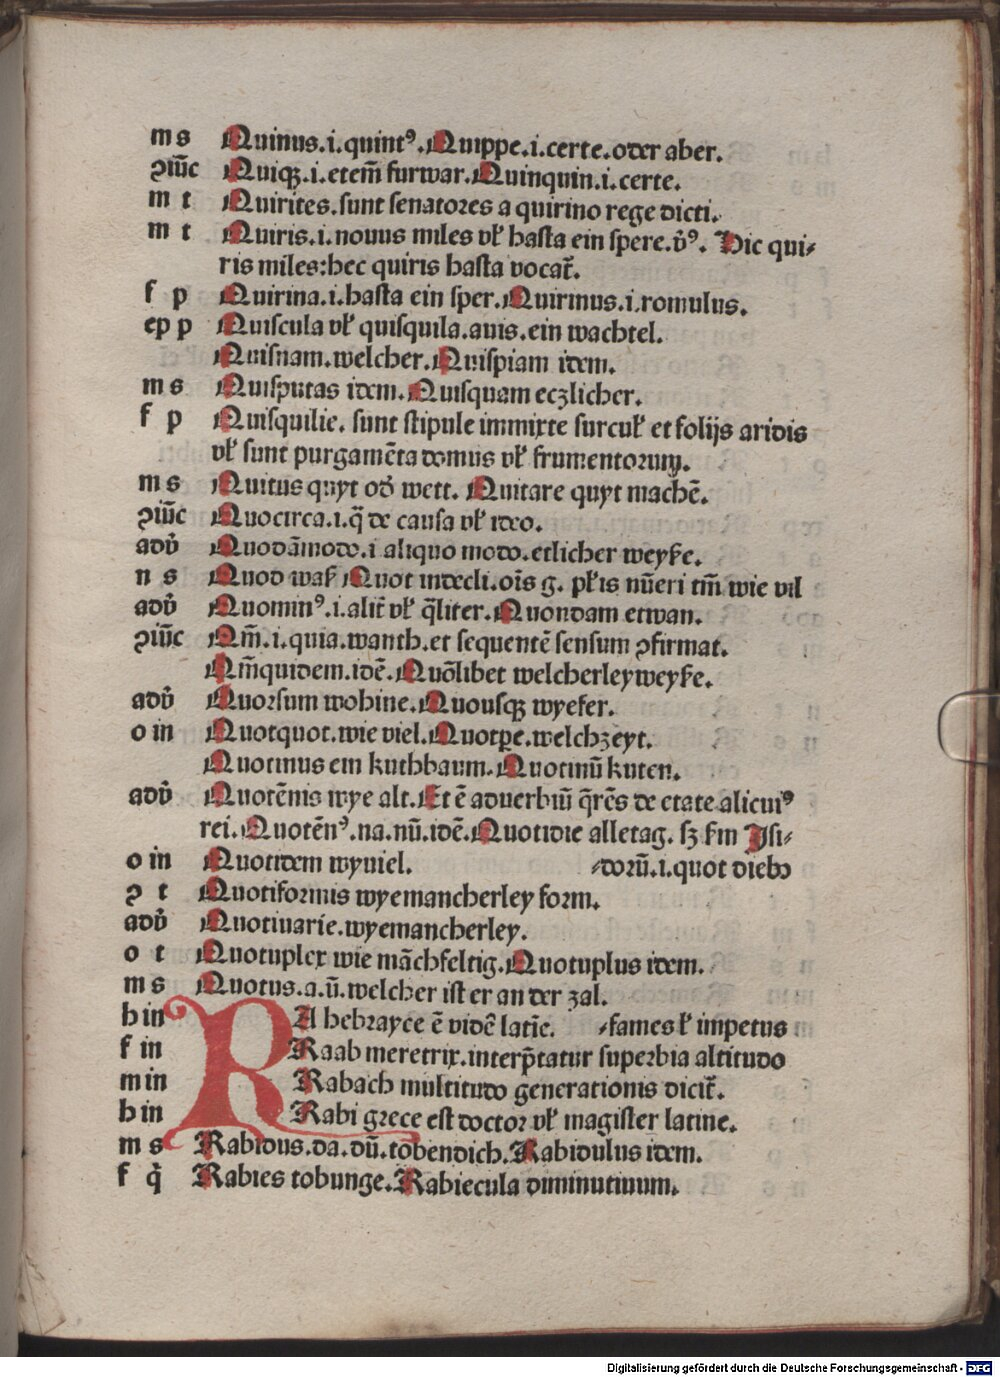 m s Quinus.i.quintꝰ.Quippe.i.certe.oder aber.
ꝯiūc Quiqꝫ.i.etem̄ furwar.Quinquin.i.certe.
m t Quirites.sunt senatores a quirino rege dicti.
m t Quiris.i.nouus miles vl̕ hasta ein spere.v̉ꝰ. Hic qui⸗
ris miles:hec quiris hasta vocat̄.
f p Quirina.i.hasta ein sper.Quirinus.i.romulus.
ep p Quiscula vl̕ quisquila.auis.ein wachtel.
Quisnam.welcher.Quispiam idem.
m s Quisputas idem.Quisquam eczlicher.
f p Quisquilie. sunt stipule immixte surcul̕ et folijs aridis
vl̕ sunt purgamēta domus vl̕ frumentorum.
m s Quitus quyt od̕ wett. Quitare quyt machē.
ꝯiūc Quocirca.i.q̄ de causa vl̕ ideo.
adv̉ Quodāmodo.i aliquo modo.etlicher weyse.
n s Quod was Quot indecli.oīs g. pl̕is nūeri tm̄ wie vil
adv̉ Quominꝰ.i.alit̄ vl̕ q̄liter.Quondam etwan.
ꝯiūc Qm̄.i.quia.wanth.et sequentē sensum ꝯfirmat.
Qm̄quidem.idē.Quōlibet welcherleyweyse.
adv̉ Quorsum wohine.Quousqꝫ wyefer.
o in Quotquot.wie viel.Quotꝑe.welchzeyt.
Quotinus ein kuthbaum.Quotinū kuten.
adv̉ Quotēnis wye alt.Et ē aduerbiū q̄rēs de etate alicuiꝰ
rei.Quotēnꝰ.na.nū.idē.Quotidie alletag. sꝫ fm Isi⸗
o in Quotidem wyuiel. ⸗dorū.i.quot diebꝫ
ꝯ t Quotiformis wyemancherley form.
adv̉ Quotiuarie.wyemancherley.
o t Quotuplex wie māchfeltig.Quotuplus idem.
m s Quotus.a.ū.welcher ist er an der zal.
h in RA hebrayce ē vidē latīe. ⸗fames l̕ impetus
f in Raab meretrix.interp̄tatur superbia altitudo
m in Rabach multitudo generationis dicit̄.
h in Rabi grece est doctor vl̕ magister latine.
m s Rabidus.da.dū.tobendich.Rabidulus idem.
f q̉ Rabies tobunge.Rabiecula diminutiuum.
Digitalisierung gefördert durch die Deutsche Forschungsgemeinschaft - DFG